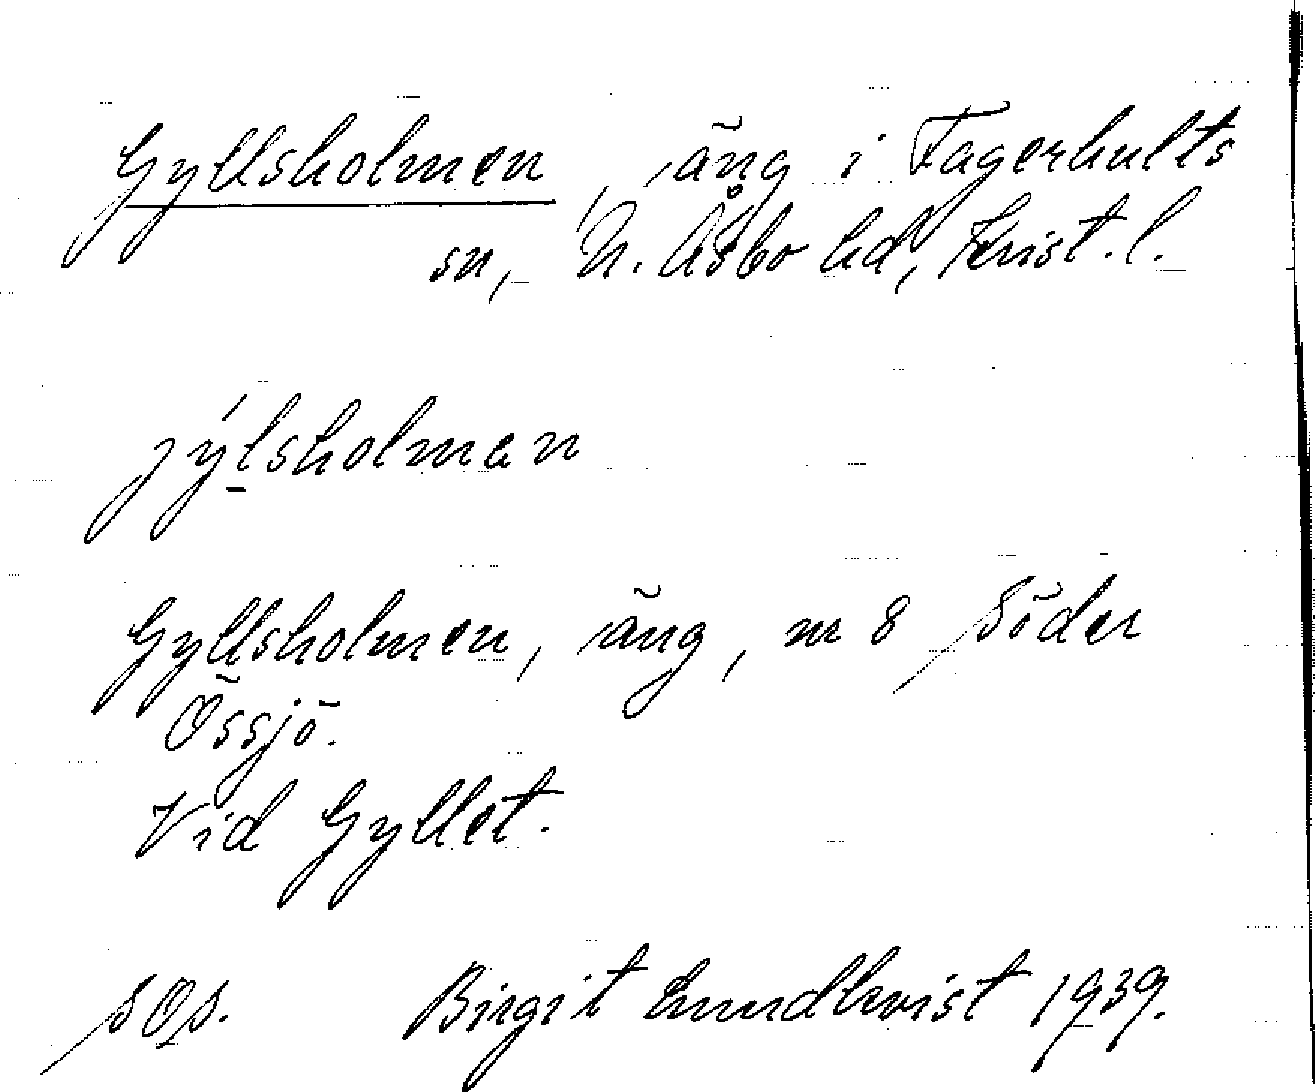 Gyllsholmen, äng i Fagerhults
sn, N. Åsbo hd, Krist. l.
jýlsholmən
Gyllsholmen, äng, m 8 Söder
Össjö.
Vid Gyllet.
sOs. Birgit Lundkvist 1939.